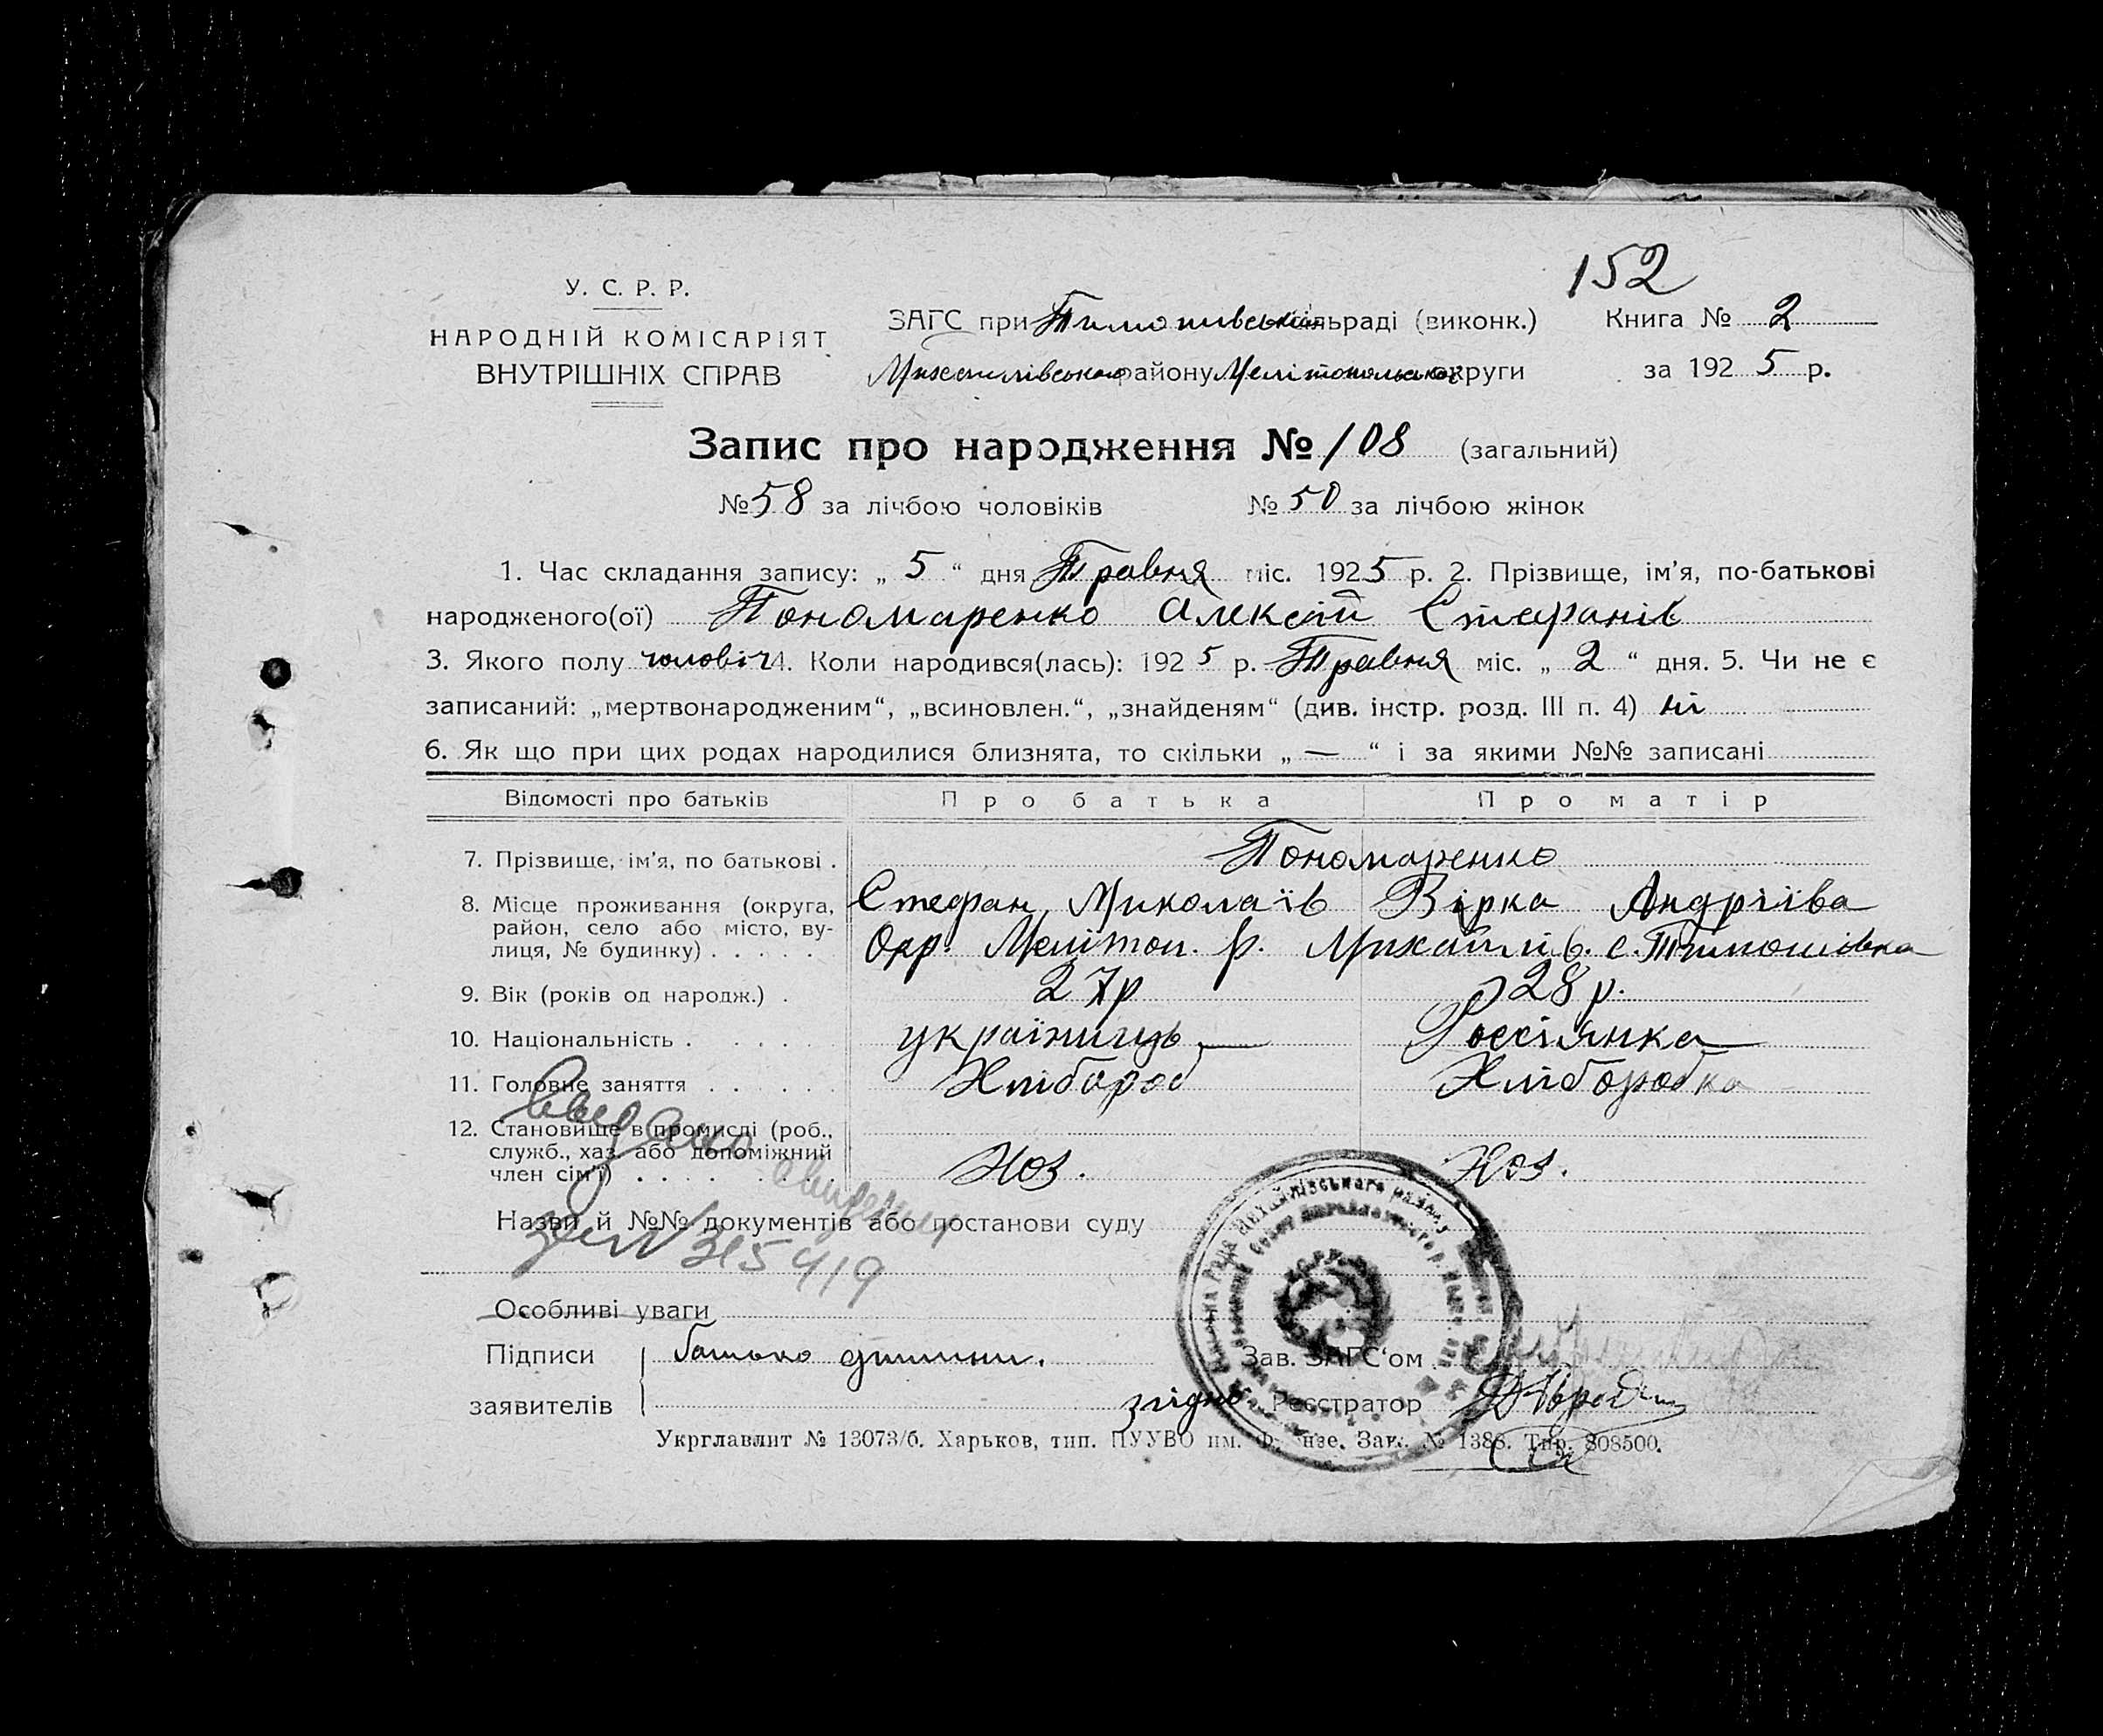 152
У. С. Р. Р.
НАРОДНІЙ КОМІСАРІЯТ
ВНУТРІШНІХ СПРАВ
ЗАГС при Тимошівській сільраді (виконк.)
Михайлівського району Мелітопольської округи
Книга № 2
за 1925 р.
Запис про народження № 108 (загальний)
№ 58 за лічбою чоловіків № 50 за лічбою жінок
1. Час складання запису: „ 5 “ дня Травня міс. 1925 р. 2. Прізвище, ім'я, по-батькові
народженого(ої) Пономаренко Алексій Стефанів
3. Якого полу чоловіч 4. Коли народився(лась): 1925 р. Травня міс. „ 2 “ дня. 5. Чи не є
записаний: „мертвонародженим“, „всиновлен.“, „знайденям“ (див. інстр. розд. III п. 4) ні
6. Як що при цих родах народилися близнята, то скільки „ — “ і за якими №№ записані
Відомості про батьків Про батька Про матір
7. Прізвище, ім'я, по батькові . Пономаренко
Стефан Миколаїв Вірка Андріїва
8. Місце проживання (округа,
район, село або місто, ву-
лиця, № будинку) . . . . . Окр. Меліток. р. Михайлів. с. Тимошівка
9. Вік (років од народж.) . 27р 28 р.
10. Національність . . . . . українець Россіянка
11. Головне заняття . . . . . Хлібороб Хліборобка
12. Становище в промислі (роб.,
служб., хаз. або допоміжний
член сім'ї) . . . . . Хоз. Хоз.
Назви й №№ документів або постанови суду
315419
Особливі уваги
Підписи батько дитини. Зав. ЗАГС'ом
заявителів згідно Реєстратор
Укрглавлит № 13073/б. Харьков, тип. ПУУВО им. Фрунзе. Зак. № 1388. Тир. 808500.